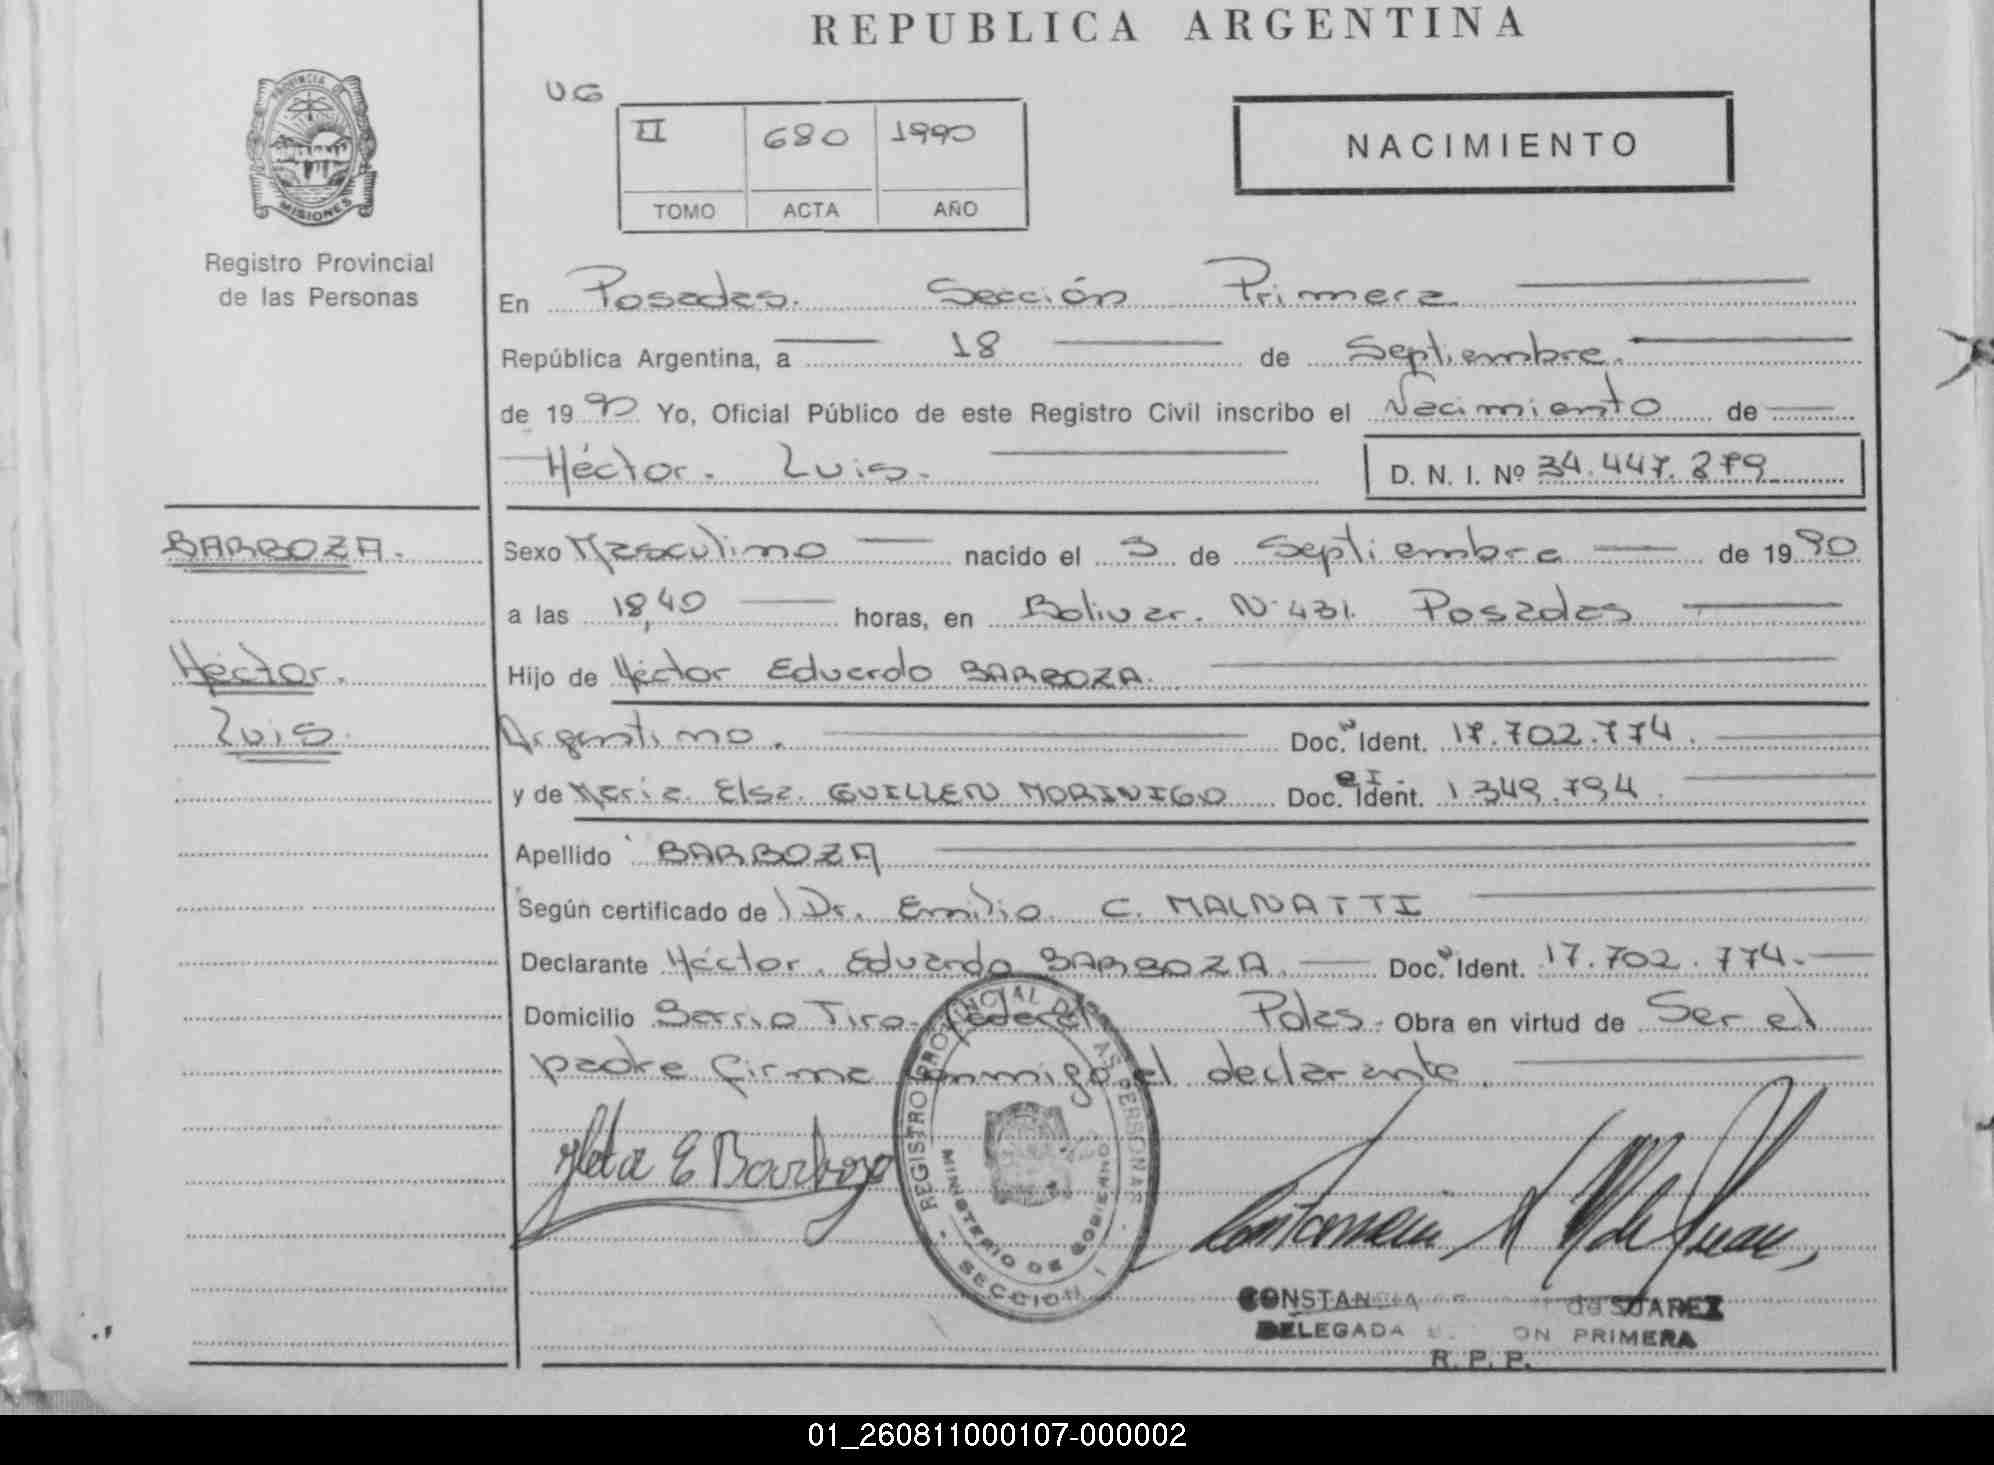 REPUBLICA ARGENTINA
UG
II 680 1990
TOMO ACTA AÑO
NACIMIENTO
PROVINCIA DE
MISIONES
Registro Provincial
de las Personas
En Posadas. Sección Primera
República Argentina, a 18 de Septiembre.
de 1990 Yo, Oficial Público de este Registro Civil inscribo el Nacimiento de
Héctor. Luis.
D. N. I. Nº 34.447.879
BARBOZA.
Héctor.
Luis.
Sexo Masculino nacido el 3 de Septiembre de 1990
a las 18,40 horas, en Bolivar. Nº 431. Posadas
Hijo de Héctor Eduardo BARBOZA.
Argentino. Doc. Ident. 17.702.774.
y de Maria. Elsa. GUILLEN MORINIGO Doc. Ident. 1.349.794.
Apellido BARBOZA
Según certificado de Dr. Emilio C. MALNATTI
Declarante Héctor. Eduardo BARBOZA. Doc. Ident. 17.702.774.
Domicilio Barrio Tiro. Federal Pdas. Obra en virtud de Ser el
padre firma conmigo el declarante.
E Barboza
REGISTRO PROVINCIAL DE LAS PERSONAS
MINISTERIO DE GOBIERNO
SECCION I
CONSTANCIA de SUAREZ
DELEGADA ON PRIMERA
R. P. P.
01_260811000107-000002